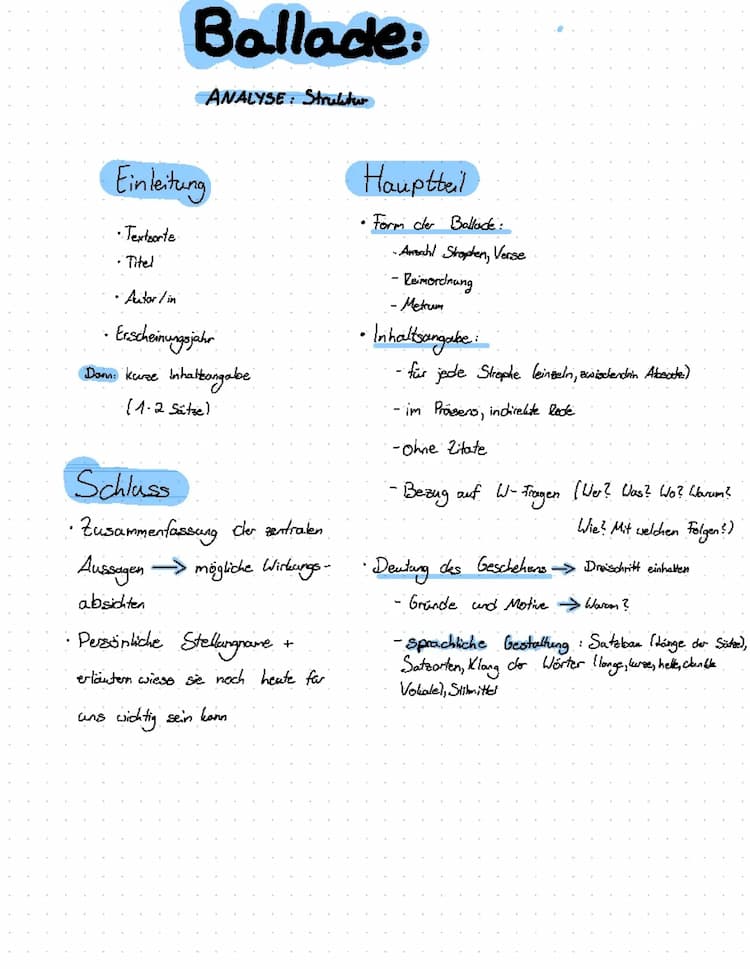 Ballade:
ANALYSE: Struktur
Einleitung
• Textsorte
• Titel
• Autor/in
• Erscheinungsjahr
Dann: kurze Inhaltsangabe
(1-2 Sätze)
Schluss
• Zusammenfassung der zentralen
Aussagen → mögliche Wirkungs-
absichten
• Persönliche Stellungname +
erläutern wieso sie noch heute für
uns wichtig sein kann
Hauptteil
• Form der Ballade:
- Anzahl Strophen, Verse
- Reimordnung
- Metrum
• Inhaltsangabe:
- für jede Strophe (einzeln, zwischendrin Absätze)
- im Präsens, indirekte Rede
- ohne Zitate
- Bezug auf W-Fragen (Wer? Was? Wo? Warum?
Wie? Mit welchen Folgen?)
• Deutung des Geschehens → Dreischritt einhalten
- Gründe und Motive → Warum?
- sprachliche Gestaltung: Satzbau (Länge der Sätze),
Satzarten, Klang der Wörter (lange, kurze, helle, dunkle
Vokale), Stilmittel